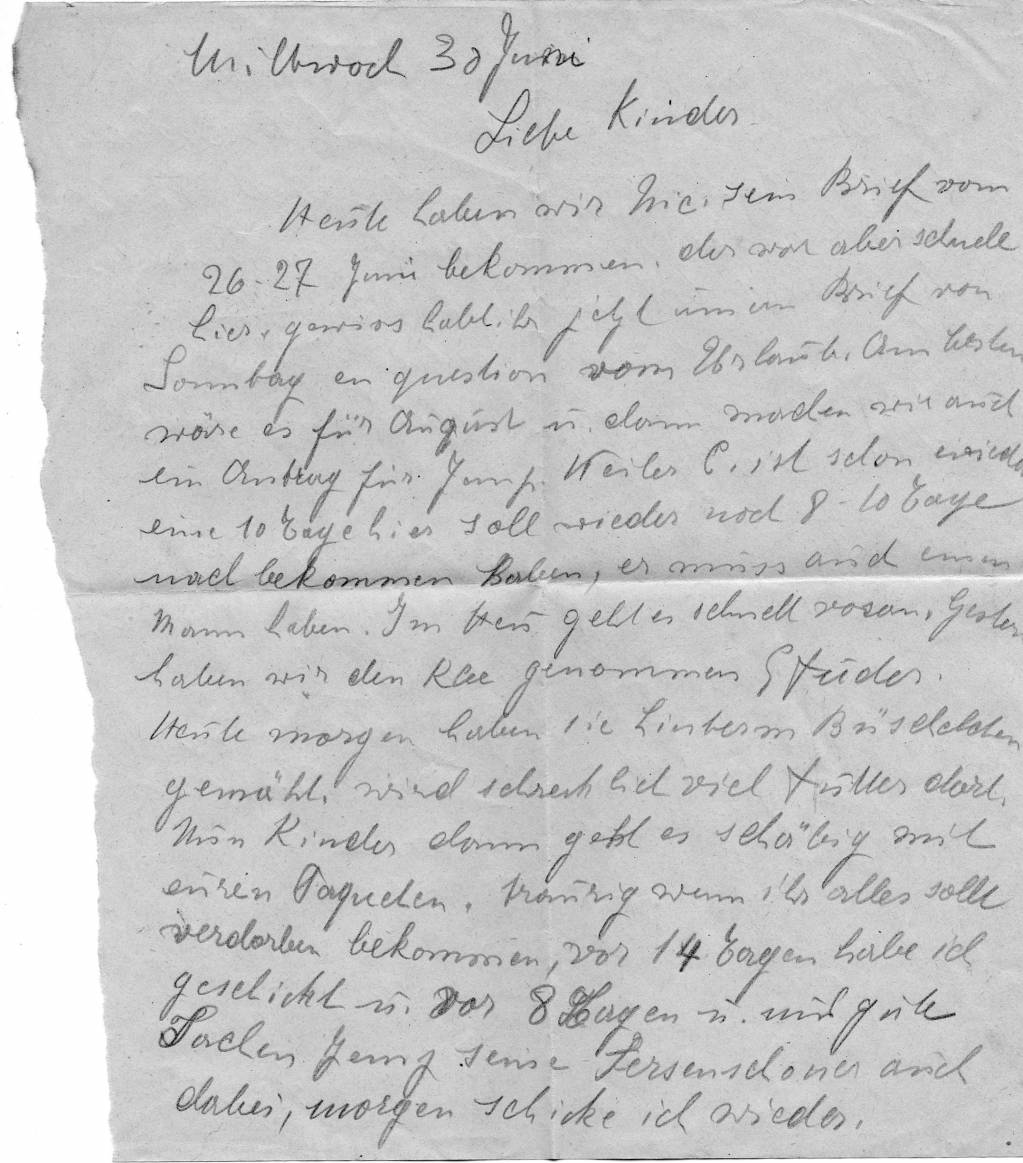 Mittwoch 30 Juni
Liebe Kinder
Heute haben wir Nic. sein Brief vom
26-27 Juni bekommen. der war aber schnell
hier, gewiss habt ihr jetzt unsern Brief von
Sonntag en question vom Urlaub. Am besten
wäre es für August u. dann machen wir auch
ein Antrag für Jemp. Weiler C. ist schon wieder
eine 10 Tage hier soll wieder noch 8-10 Tage
nach bekommen haben, er muss auch einen
Mann haben. Im Heu geht es schnell voran. Gestern
haben wir den Klee genommen 5 Fuder.
Heute morgen haben sie hinterm Büschelchen
gemäht. wird schrecklich viel Futter dort.
Nun Kinder dann geht es schäbig mit
euren Paqueten. traurig wenn ihr alles sollt
verdorben bekommen, vor 14 Tagen habe ich
geschickt u. vor 8 Tagen u. nur gute
Sachen Jemp seine Fersenschoner auch
dabei, morgen schicke ich wieder.